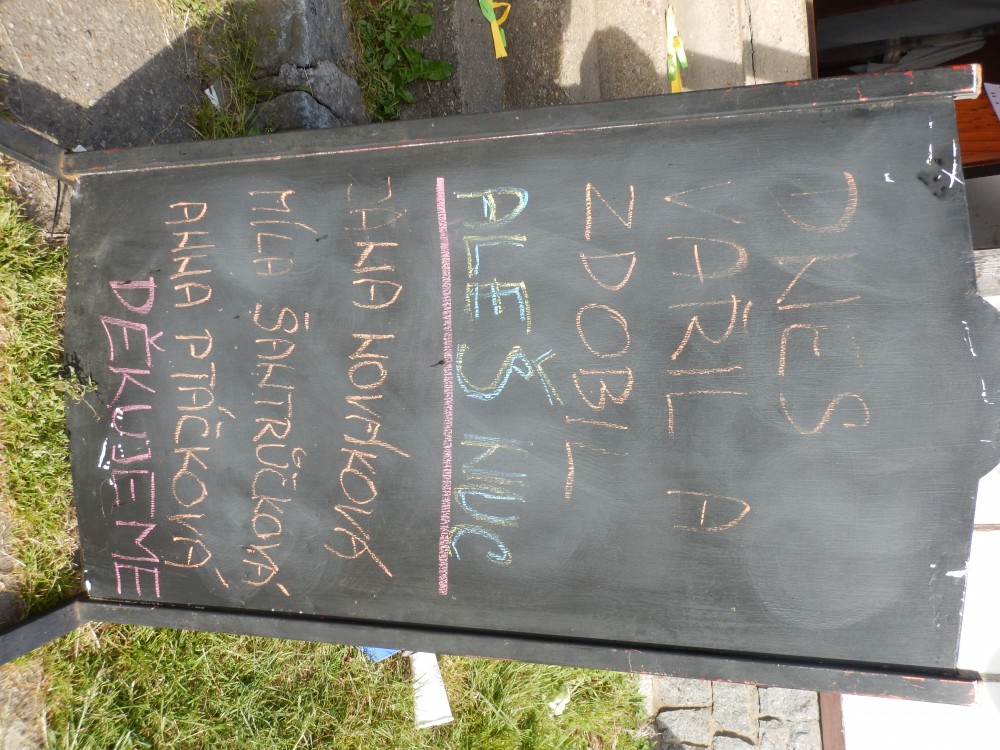 DNES
VAŘIL A
ZDOBIL
ALEŠ NUC
JANA NOVÁKOVÁ
MÍLA ŠANTRŮČKOVÁ
ANNA PTÁČKOVÁ
DĚKUJEME